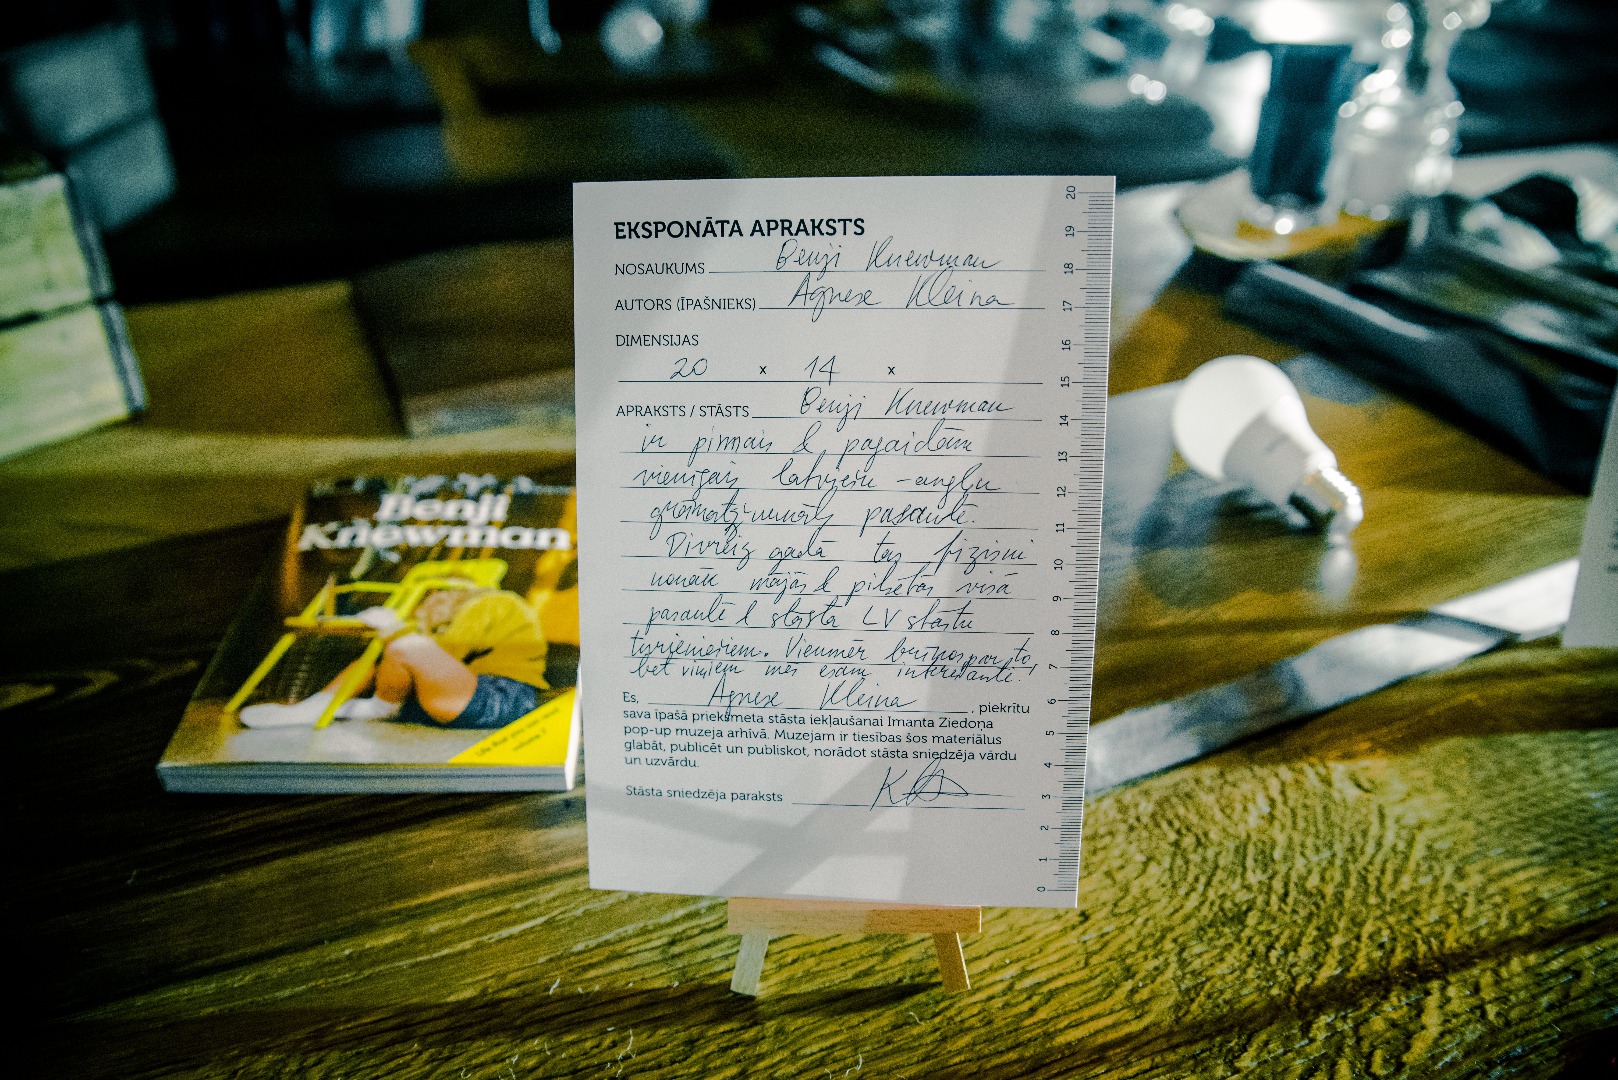 EKSPONĀTA APRAKSTS
NOSAUKUMS Benji Knewman
AUTORS (ĪPAŠNIEKS) Agnese Kleina
DIMENSIJAS
20 x 14 x
APRAKSTS / STĀSTS Benji Knewman
ir pirmais & pagaidām
vienīgais latviešu - angļu
grāmatžurnāls pasaulē.
Divreiz gadā tas fiziski
nonāk mājās & pilsētās visā
pasaulē & stāsta LV stāstu
svešiniekiem. Vienmēr par to,
bet viņiem mēs esam interesanti.
Es, Agnese Kleina, piekrītu
sava īpašā priekšmeta stāsta iekļaušanai Imanta Ziedoņa
pop-up muzeja arhīvā. Muzejam ir tiesības šos materiālus
glabāt, publicēt un publiskot, norādot stāsta sniedzēja vārdu
un uzvārdu.
Stāsta sniedzēja paraksts
20
19
18
17
16
15
14
13
12
11
10
9
8
7
6
5
4
3
2
1
0
Benji
Knewman